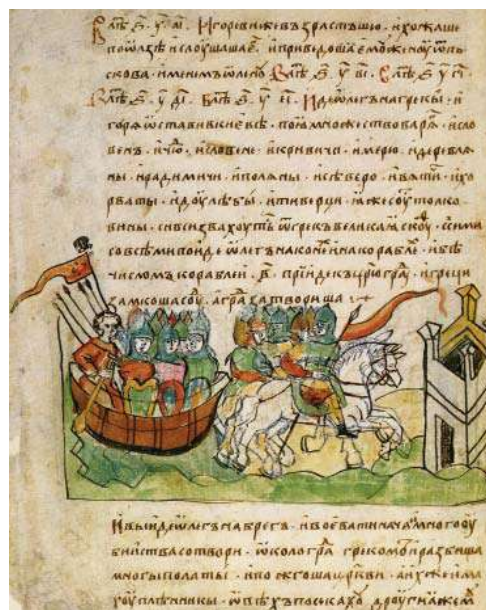 В лѣⷮ ҂ѕ҃ у҃ ı҃ Игореви же възрастъшю и хожаше
по ѡлзѣ и слоушаша е и приведоша емоу женоу ѿ пь
скова именемъ ѡленоу В лѣⷮ ҂ѕ҃ у҃ вı҃ В лѣⷮ ҂ѕ҃ у҃ гı҃
В лѣⷮ ҂ѕ҃ у҃ дı҃ В лѣⷮ ҂ѕ҃ у҃ еı҃ Иде ѡлегъ на грекы и
горѧ ѡстави в киевѣ поıа множество варѧ и сло
венъ и чю и словене и кривичи и мерю и деревлѧ
ны и радимичи и полѧны и севero и вѧтичи и хо
рваты и доулѣбы и тиверци ıаже соуть толко
вины си вси звахоуть ѿ грекъ великаıа скоуⷴ с сими
со всѣми поиде ѡлегъ на конеⷯ и на кораблеⷯ и бѣ
числомъ кораблей в҃ прїиде къ цр҃юграⷣ и греци
замкоша соуⷣ а граⷣ затвориша
И выиде ѡлегъ на брегъ и воевати нача и много оу
бииства сотвори ѡколо граⷣ грекомъ и разбиша
многы полаты и пожгоша цр҃кви а ихже има
хоу плѣнникы ѡвѣхъ посекахоу дроугиıа же м